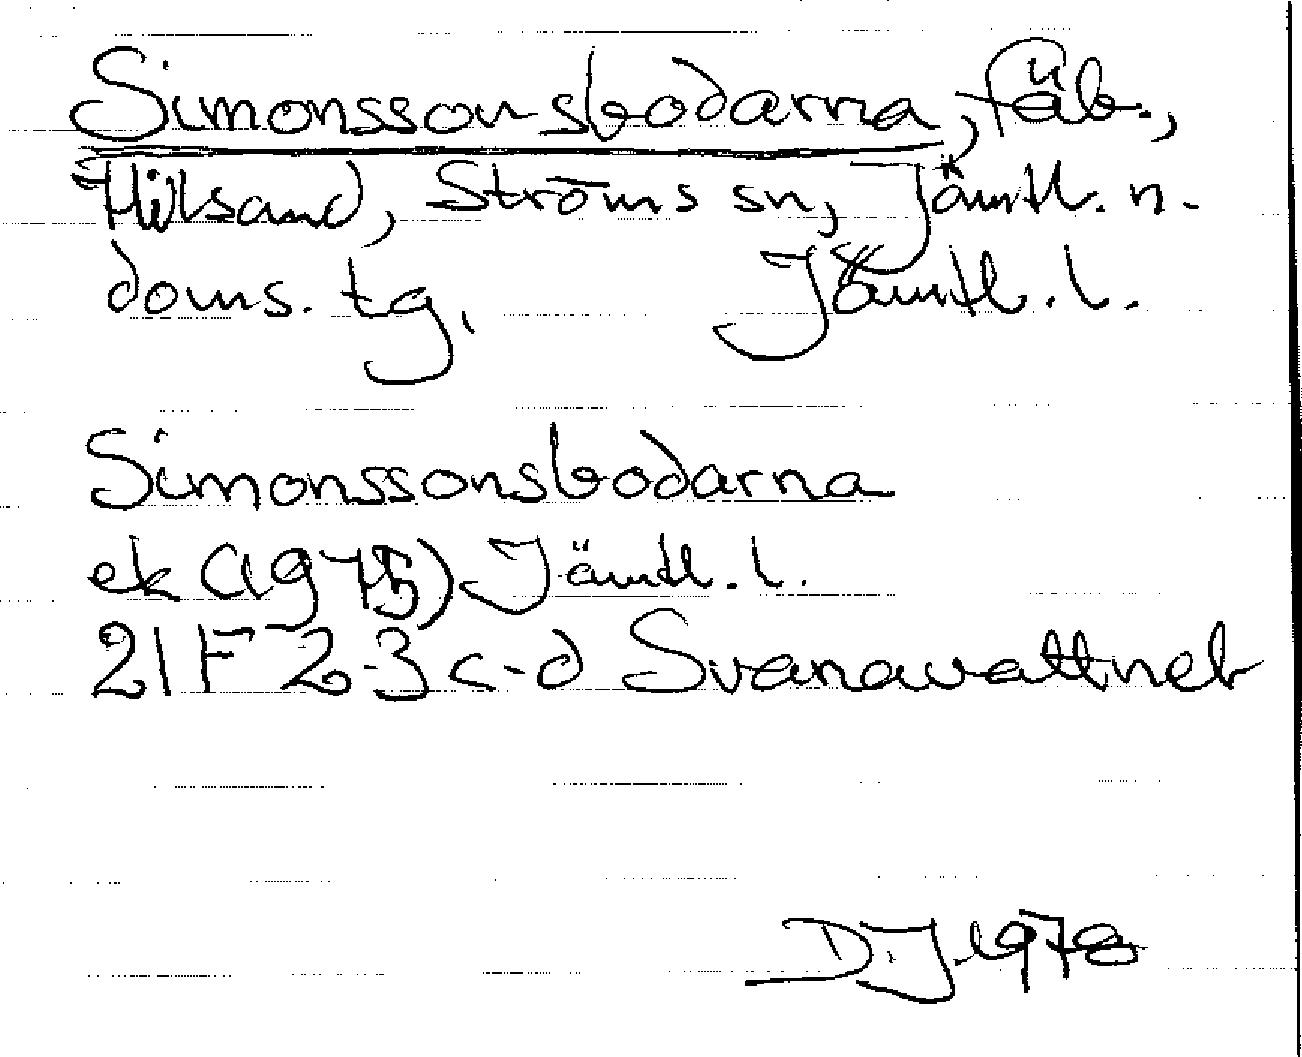 Simonssonsbodarna, fäb.,
Hillsand, Ströms sn, Jämtl. n.
doms. tg, Jämtl. l.
Simonssonsbodarna
ek (1975) Jämtl. l.
21F 2-3 c-d Svanavattnet
D.J. 1978